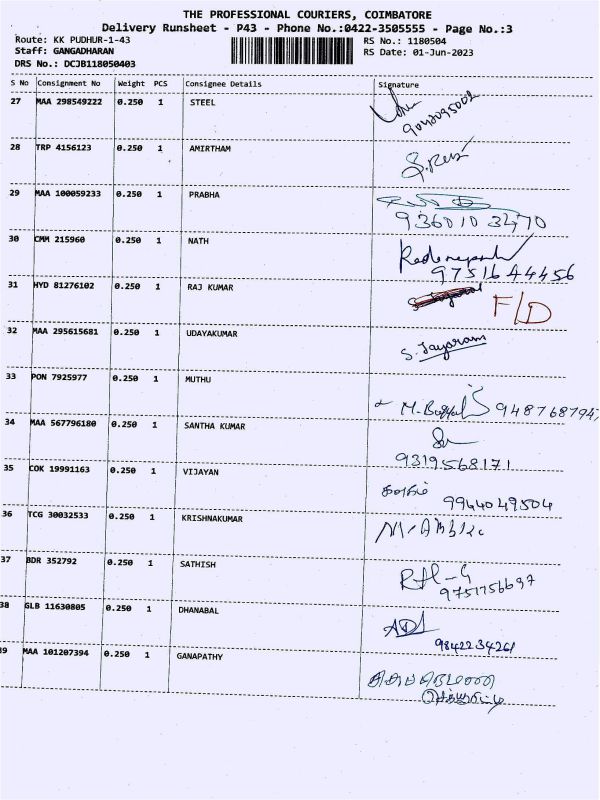 THE PROFESSIONAL COURIERS, COIMBATORE
Delivery Runsheet - P43 - Phone No.:0422-3505555 - Page No.:3
Route: KK PUDHUR-1-43 RS No.: 1180504
Staff: GANGADHARAN RS Date: 01-Jun-2023
DRS No.: DCJB118050403
S No Consignment No Weight PCS Consignee Details Signature
27 MAA 298549222 0.250 1 STEEL
28 TRP 4156123 0.250 1 AMIRTHAM
29 MAA 100059233 0.250 1 PRABHA
9360103470
30 CMM 215960 0.250 1 NATH
9751644456
31 HYD 81276102 0.250 1 RAJ KUMAR F/D
32 MAA 295615681 0.250 1 UDAYAKUMAR
S. Jayaram
33 PON 7925977 0.250 1 MUTHU
9487687947
34 MAA 567796180 0.250 1 SANTHA KUMAR
9319568171
35 COK 19991163 0.250 1 VIJAYAN
9944049504
36 TCG 30032533 0.250 1 KRISHNAKUMAR
37 BDR 352792 0.250 1 SATHISH
9751756697
38 GLB 11630805 0.250 1 DHANABAL
9842234261
39 MAA 101207394 0.250 1 GANAPATHY